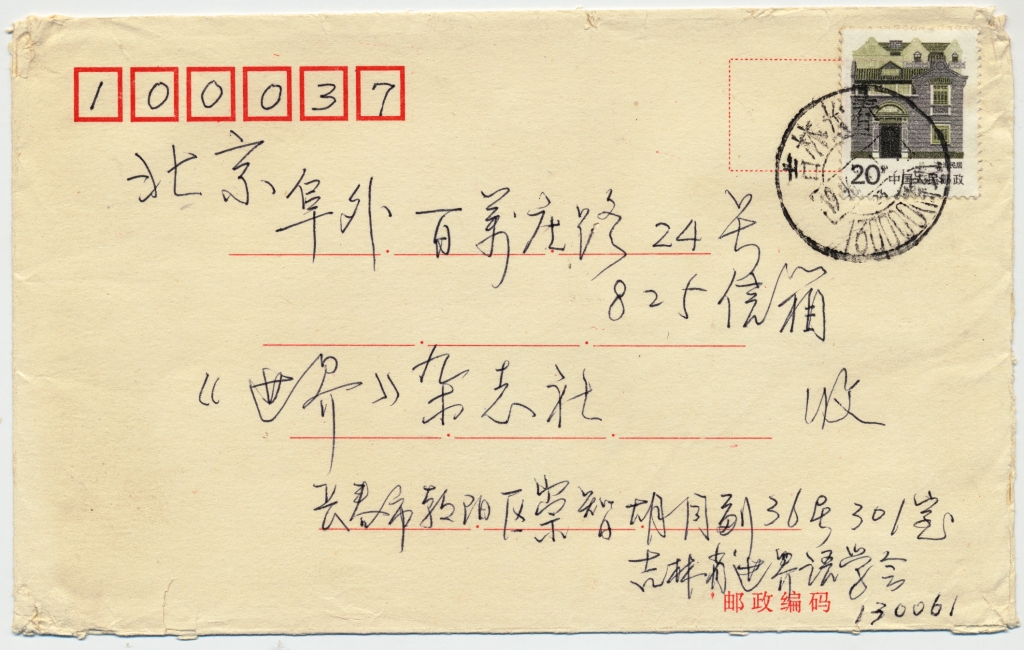 100037
北京
阜外百万庄路24号
825信箱
《世界》杂志社 收
长春市朝阳区崇智胡同副36号301室
吉林省世界语学会
邮政编码 130061
20分 中国人民邮政
上海民居
吉林长春
130000